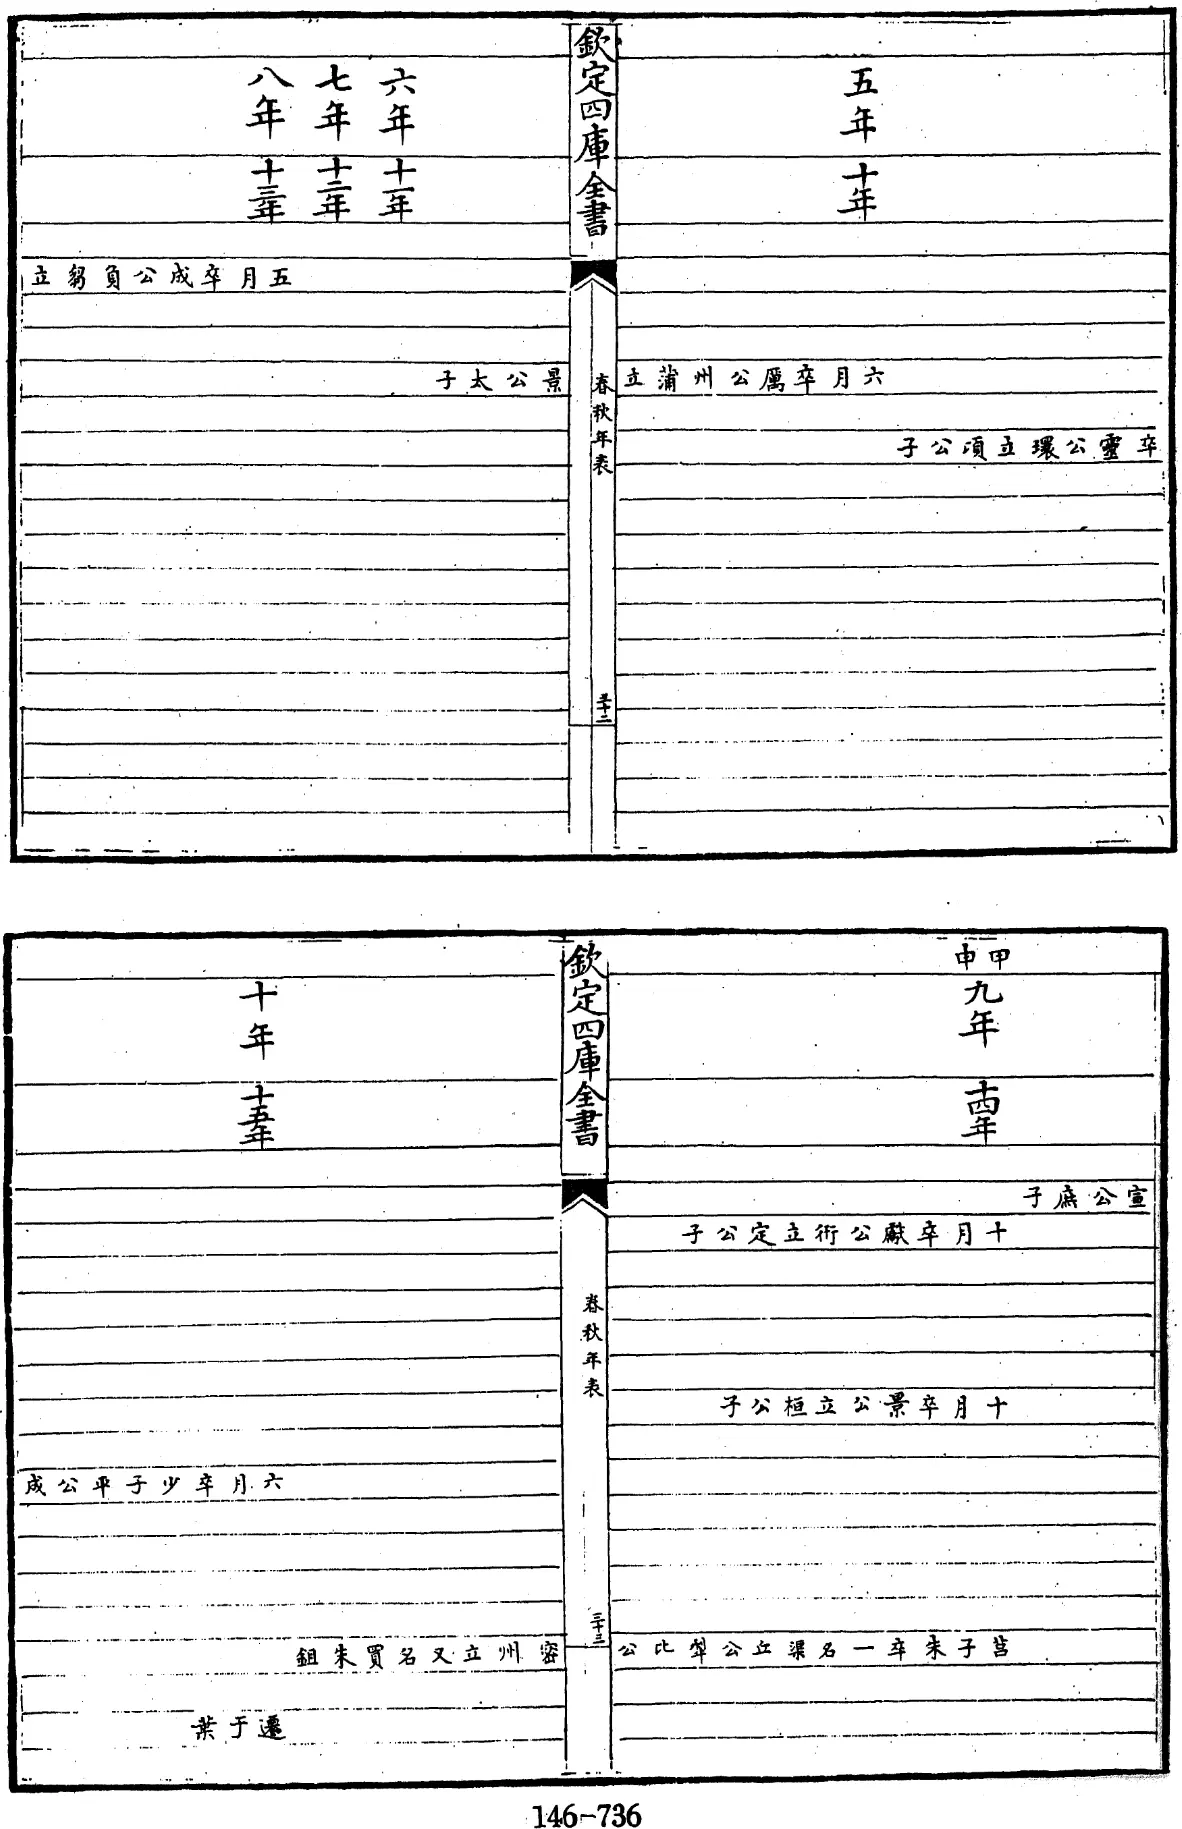 五年
十年
六月卒厲公州蒲立
卒靈公環立頃公子
欽定四庫全書
春秋年表
三十二
六年
十一年
七年
十二年
八年
十三年
五月卒成公負芻立
景公太子
甲申
九年
十四年
宣公庶子
十月卒獻公衎立定公子
十月卒景公立桓公子
莒子朱卒一名渠丘公犁比公
欽定四庫全書
春秋年表
三十三
十年
十五年
六月卒少子平公成
密州立又名買朱鉏
遷于葉
146-736